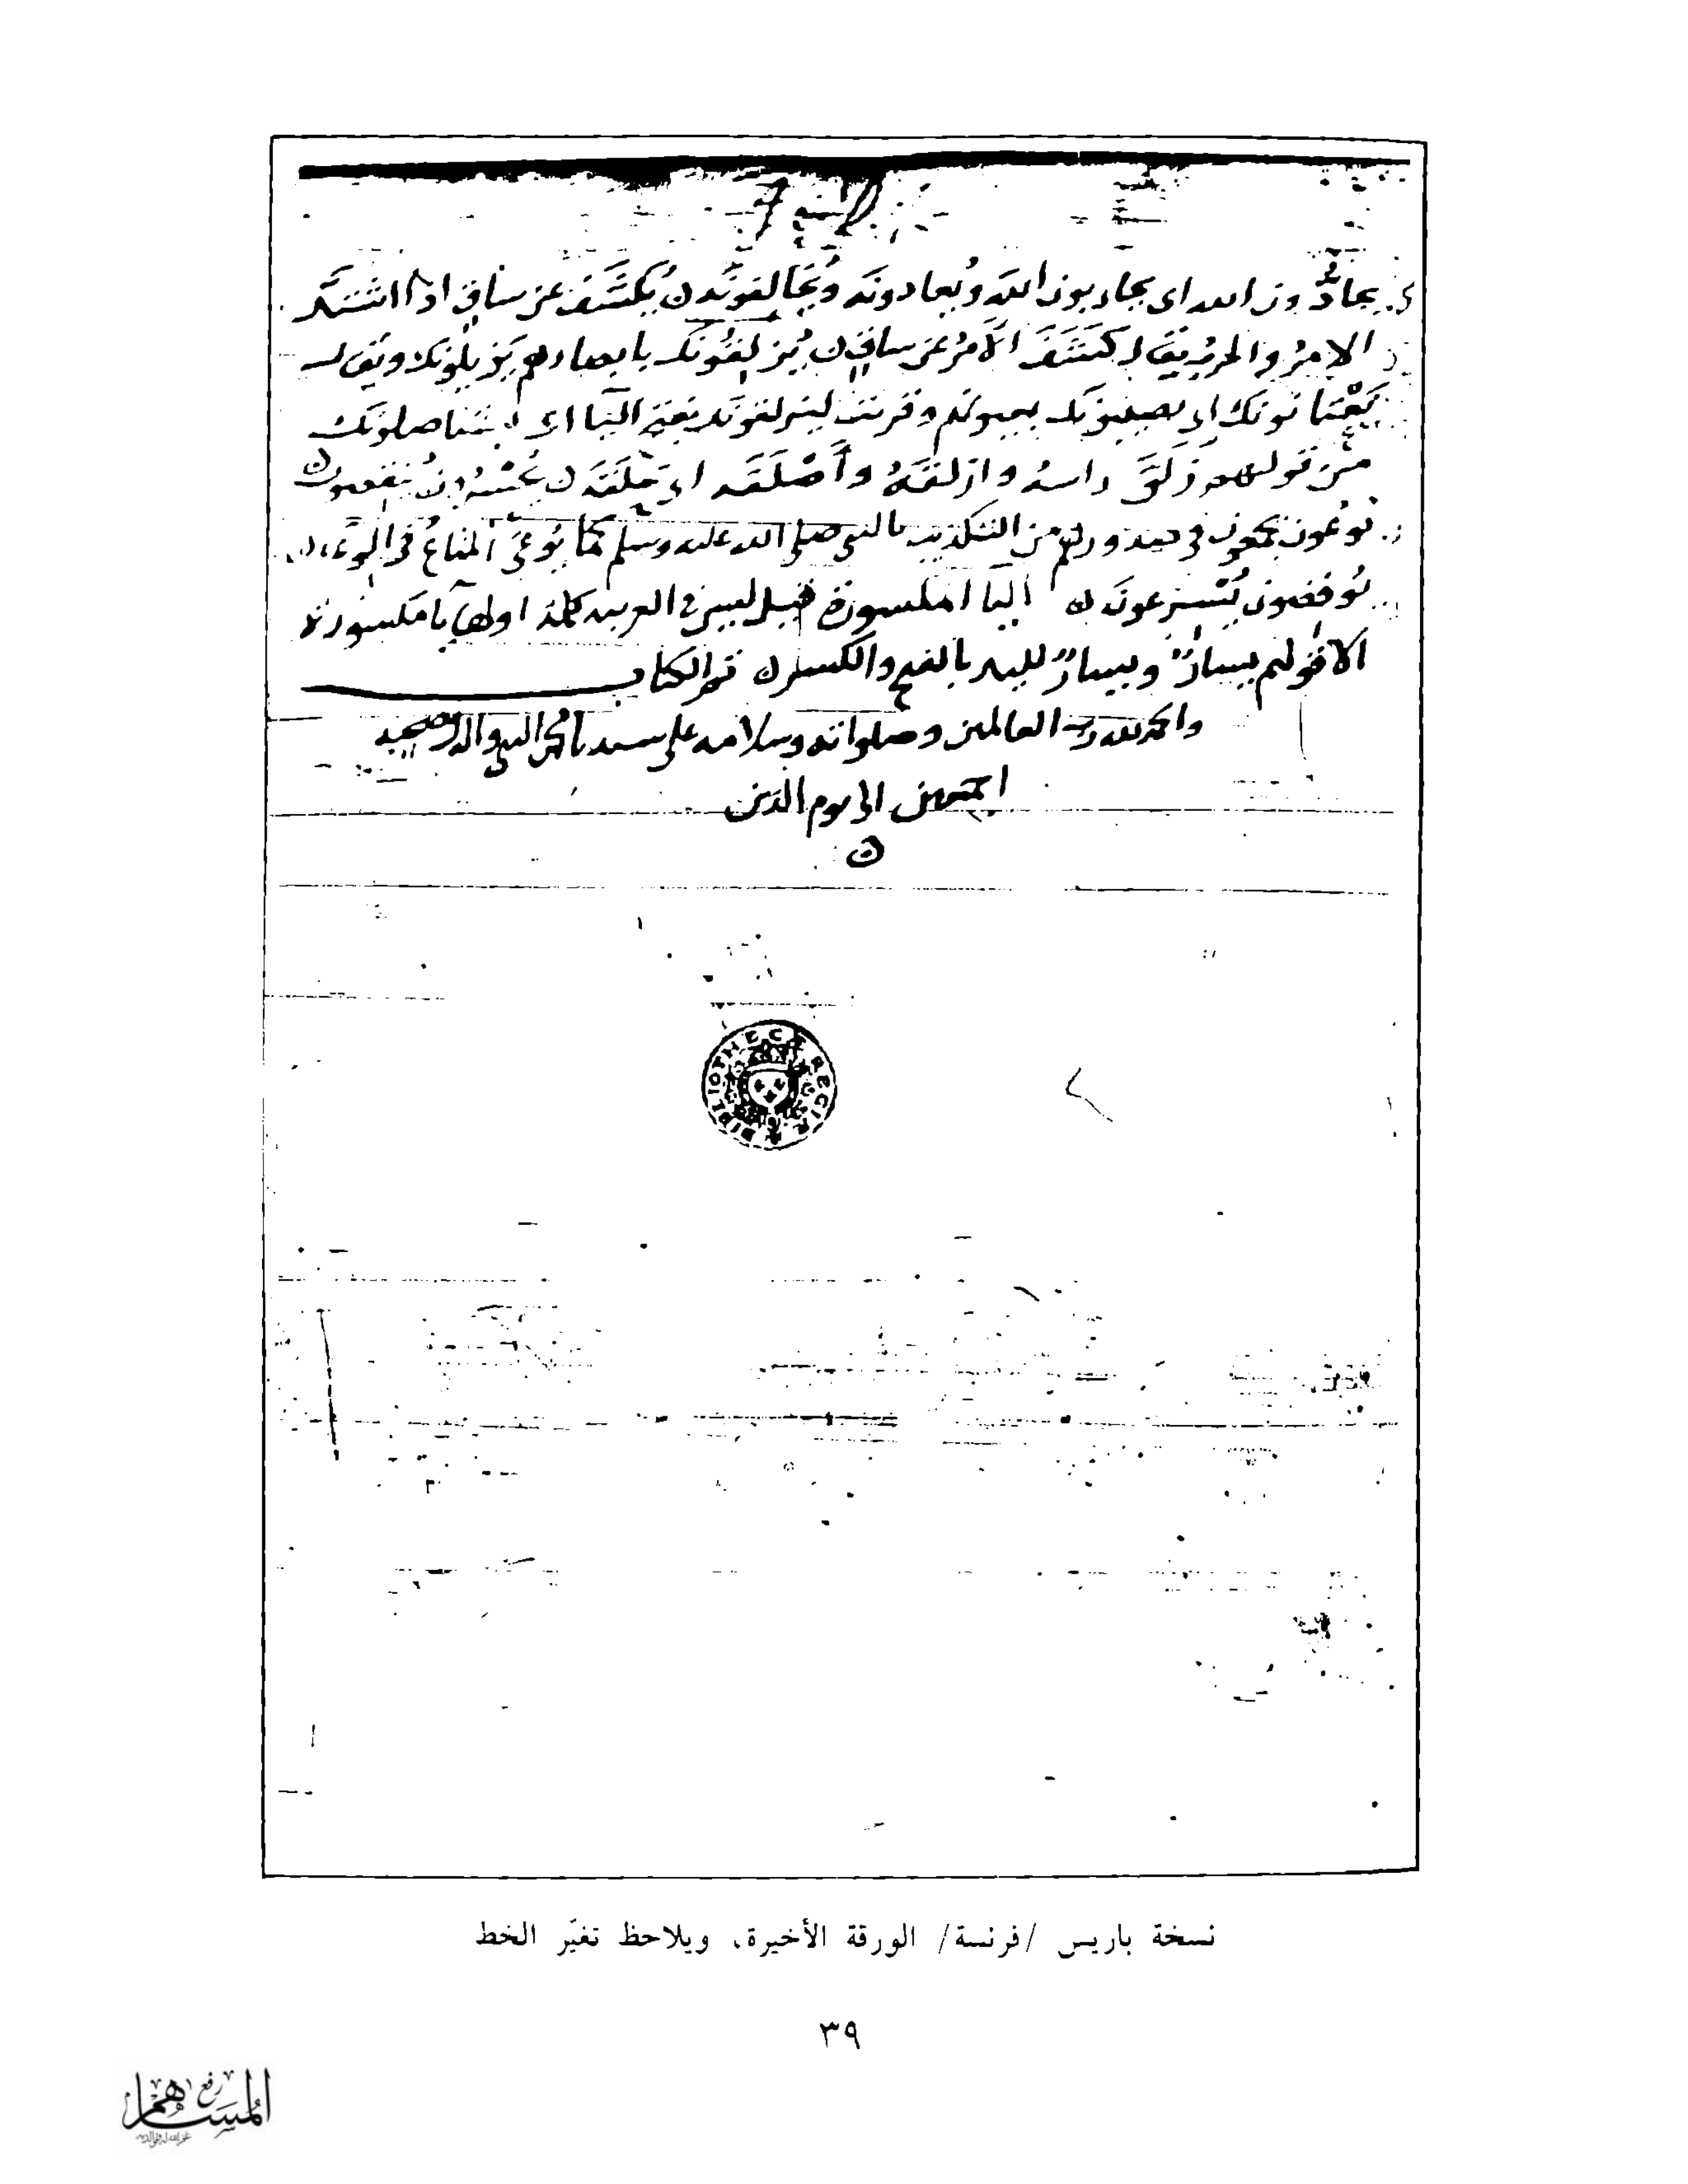 يحادون الله اى يحاربون الله ويعادونه ويخالفونه ن يُكشَفُ عن ساقٍ اذا اشتد
الامرُ والحربُ يقال كشَفَ الأمرُ عن ساقٍ ن يُزلِقُونك بابصارهم يُزيلونك ويقال
يَعْتانونك اى يصيبونك بعيونهم وقرئت ليزلقونك بفتح اليا اى يستاصلونك
من قولهم زَلَقَ راسهُ وازلقَهُ اى حلقَه ن
يُوعُون يجمعون فى صدورهم من التكذيب بالنبى صلى الله عليه وسلم كما يُوعَى المتاعُ فى الوعاء ن
يُوفضون يُسْرعونَ ن اليا المكسورة قيل ليس فى العربيه كلمة اولها يا مكسورة
الا قولهم يسارٌ ويسارٌ لليد بالفتح والكسر ن تم الكتاب
والحمد لله رب العالمين وصلواته وسلامه على سيدنا محمد النبى واله وصحبه
اجمعين الى يوم الدين
ن
BIBLIOTHECA REGIA
نسخة باريس /فرنسة/ الورقة الأخيرة، ويلاحظ تغيّر الخط
٣٩